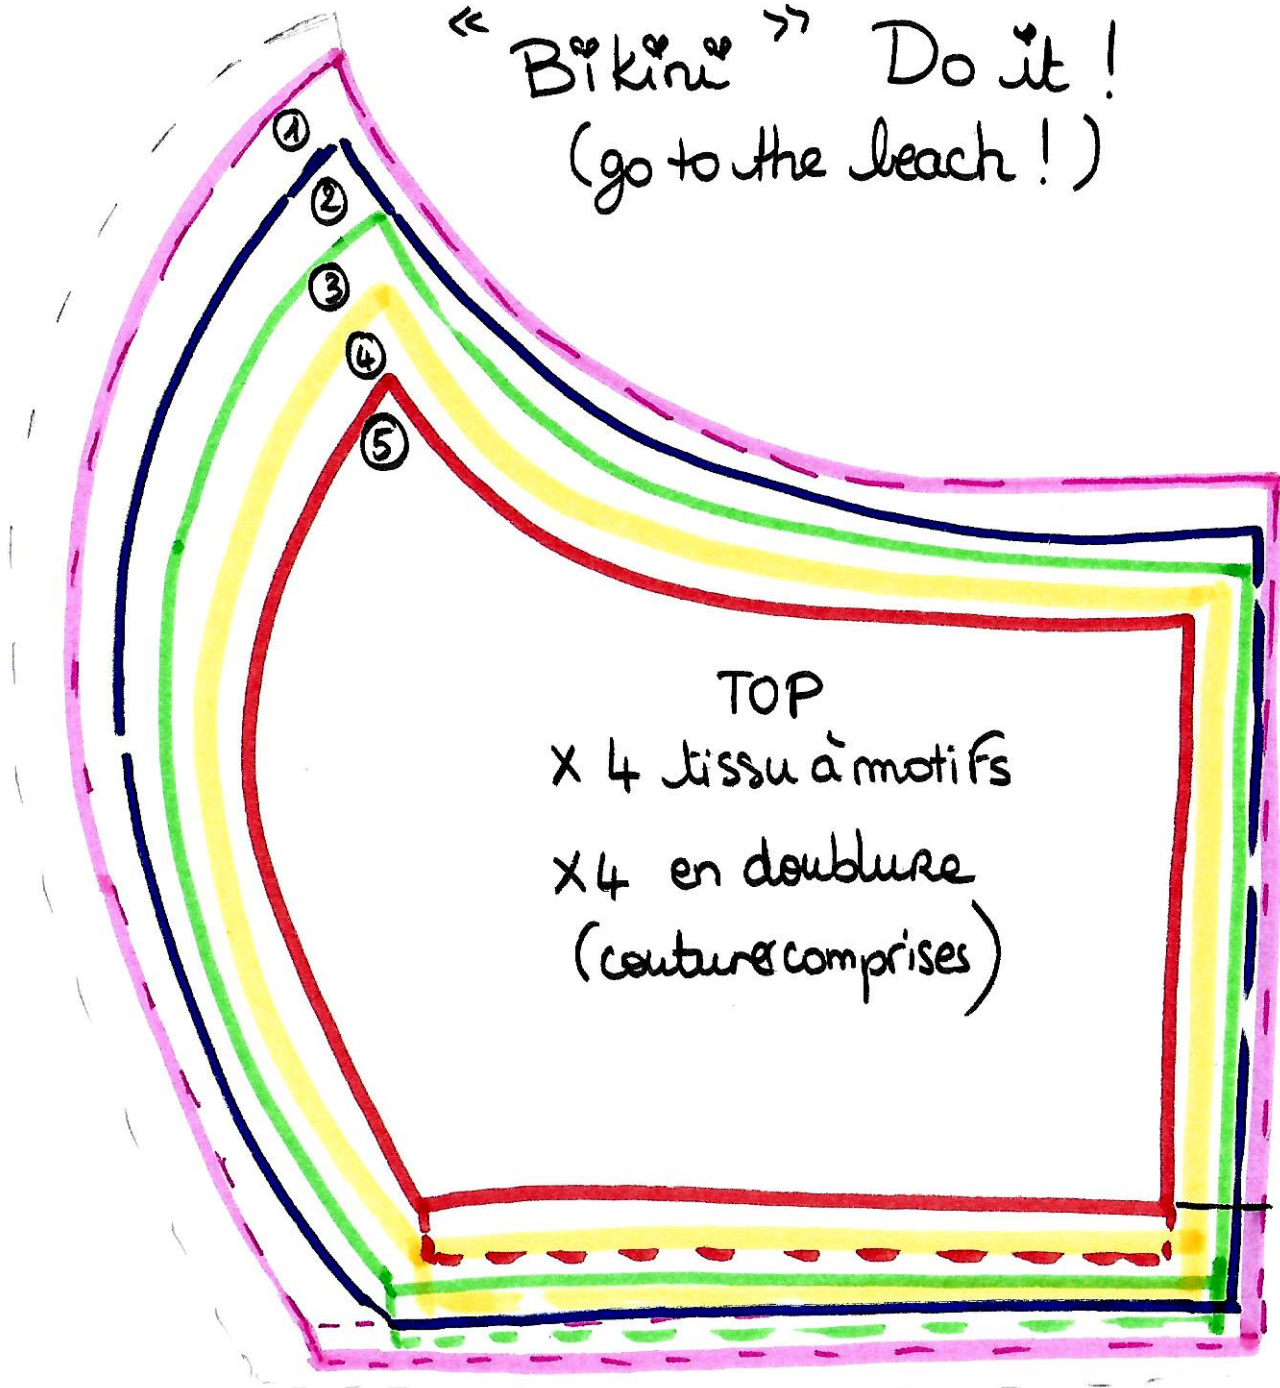 « Bikini » Do it !
(go to the beach ! )
①
②
③
④
⑤
TOP
X 4 tissu à motifs
X4 en doublure
(coutures comprises)